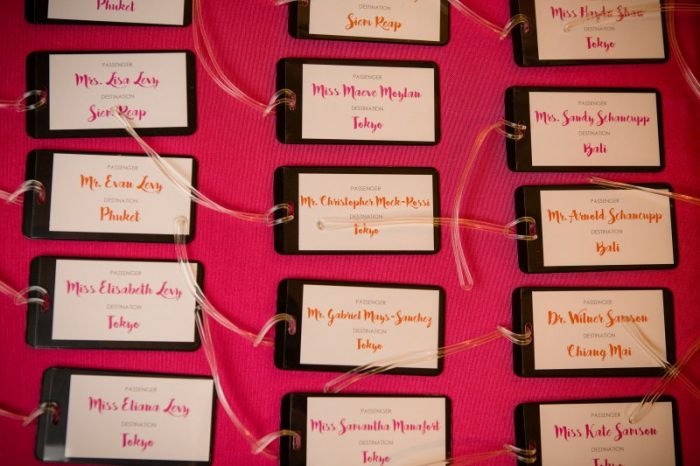 DESTINATION
Phuket
PASSENGER
Mrs. Lisa Levy
DESTINATION
Siem Reap
PASSENGER
Mr. Evan Levy
DESTINATION
Phuket
PASSENGER
Miss Elisabeth Levy
DESTINATION
Tokyo
PASSENGER
Miss Eliana Levy
DESTINATION
Tokyo
DESTINATION
Siem Reap
PASSENGER
Miss Maeve Moylan
DESTINATION
Tokyo
PASSENGER
Mr. Christopher Mock-Rossi
DESTINATION
Tokyo
PASSENGER
Mr. Gabriel Mays-Sanchez
DESTINATION
Tokyo
PASSENGER
Miss Samantha Manafort
DESTINATION
Tokyo
Miss Haydn
DESTINATION
Tokyo
PASSENGER
Mrs. Sandy Schancupp
DESTINATION
Bali
PASSENGER
Mr. Arnold Schancupp
DESTINATION
Bali
PASSENGER
Dr. Wilner Samson
DESTINATION
Chiang Mai
PASSENGER
Miss Kate Samson
DESTINATION
Tokyo